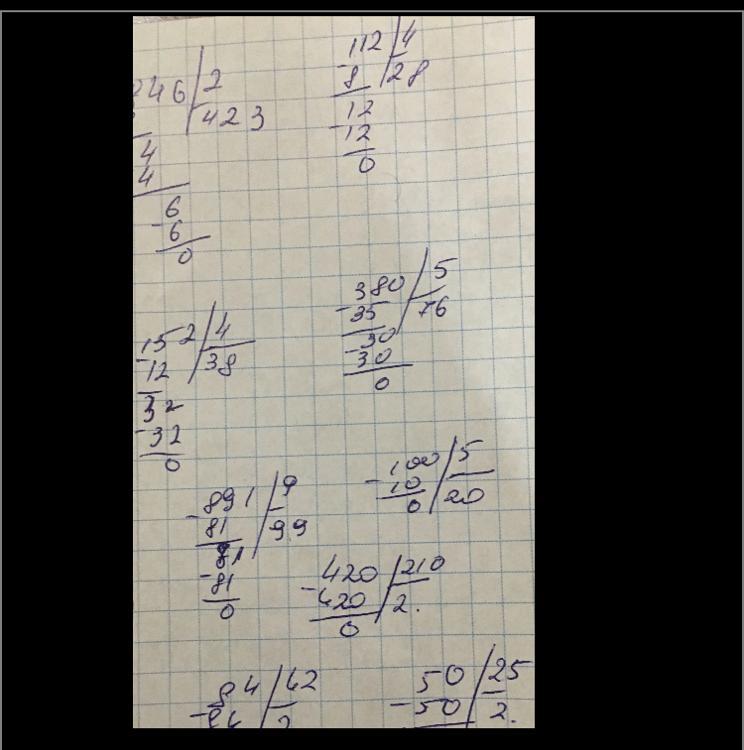 246 / 2
423
4
4
6
-6
0
112 / 4
-8 28
12
-12
0
152 / 4
-12 38
32
-32
0
380 / 5
-35 76
30
-30
0
891 / 9
-81 99
81
-81
0
100 / 5
-10 20
0
420 / 210
-420 2.
0
84 / 42
-84 2
50 / 25
-50 2.